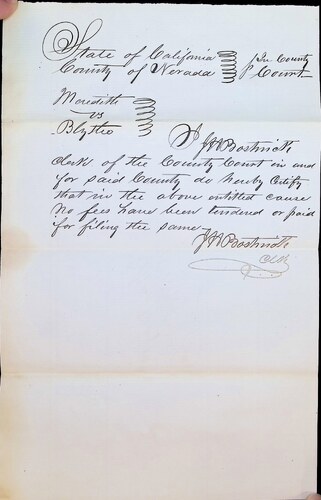 State of California
County of Nevada
In County
Court
Meredith
vs
Blythe
I JH Bostwick
clerk of the County Court in and
for said County do hereby Certify
that in the above entitled cause
No fees have been tendered or paid
for filing the same
JH Bostwick
Clk